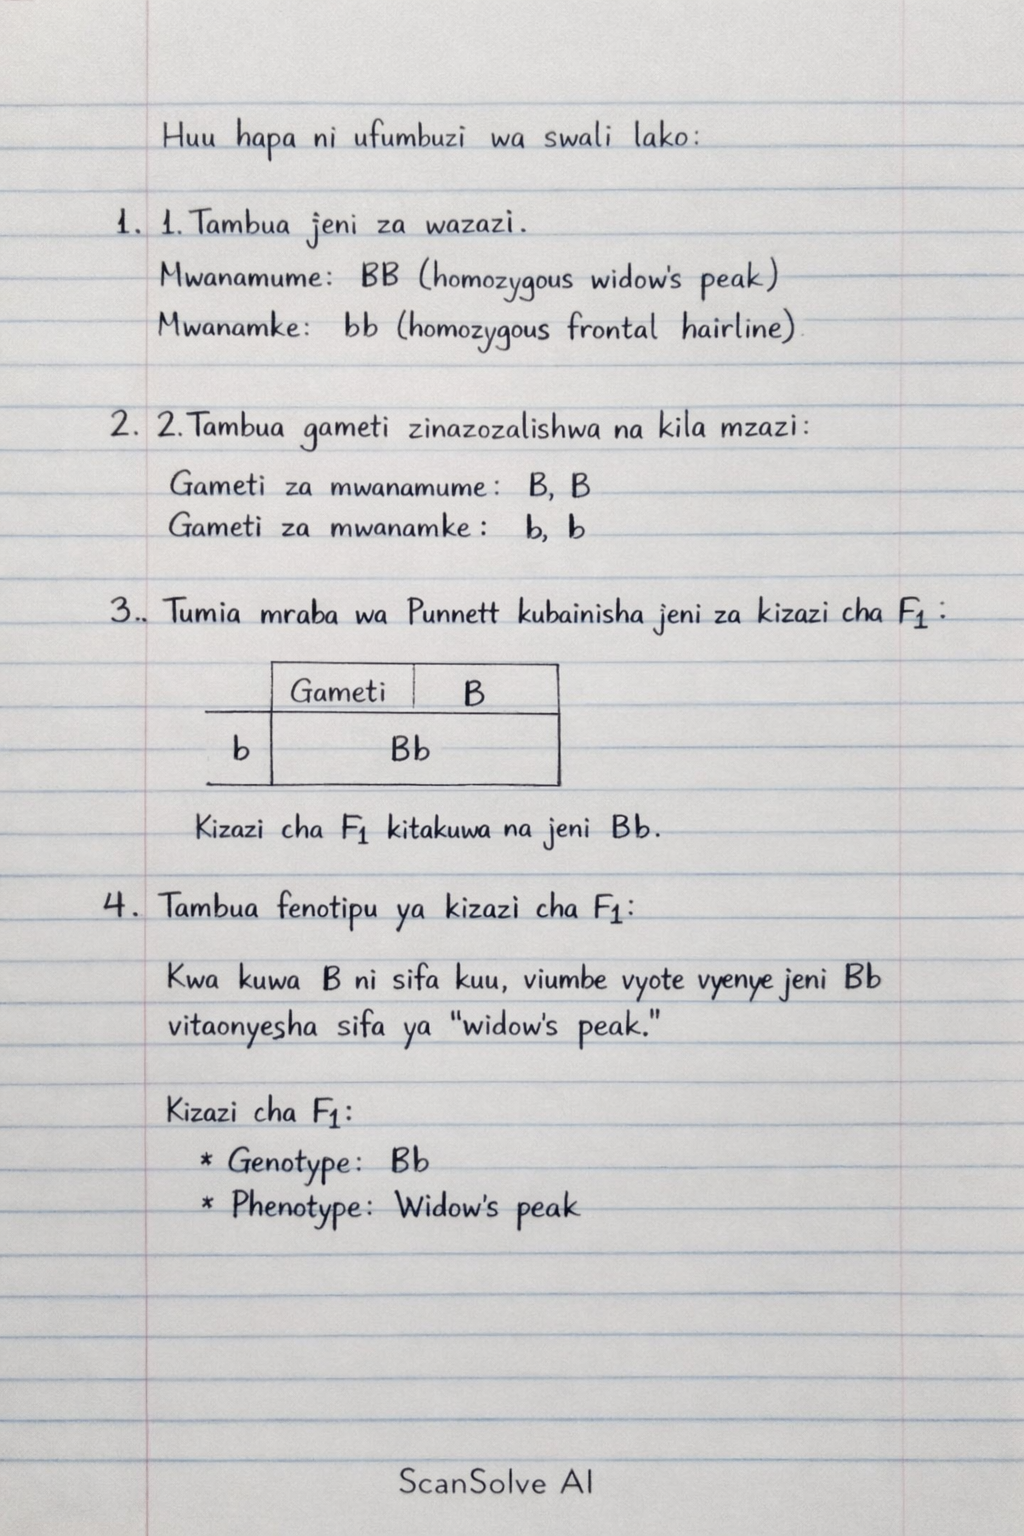 Huu hapa ni ufumbuzi wa swali lako:
1. 1. Tambua jeni za wazazi.
Mwanamume: BB (homozygous widow's peak)
Mwanamke: bb (homozygous frontal hairline)
2. 2. Tambua gameti zinazozalishwa na kila mzazi:
Gameti za mwanamume: B, B
Gameti za mwanamke: b, b
3.. Tumia mraba wa Punnett kubainisha jeni za kizazi cha F₁:
Gameti B
b Bb
Kizazi cha F₁ kitakuwa na jeni Bb.
4. Tambua fenotipu ya kizazi cha F₁:
Kwa kuwa B ni sifa kuu, viumbe vyote vyenye jeni Bb
vitaonyesha sifa ya "widow's peak."
Kizazi cha F₁:
* Genotype: Bb
* Phenotype: Widow's peak
ScanSolve AI